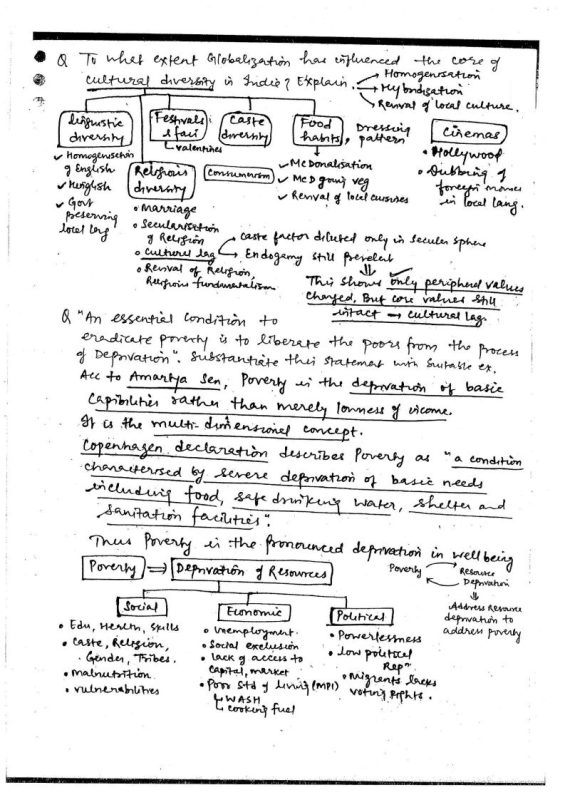 Q To what extent Globalization has influenced the core of
cultural diversity in India? Explain.
→ Homogenisation
→ Hybridization
→ Revival of local culture.
linguistic diversity
✓ Homogenisation of English
✓ Hinglish
✓ Govt preserving local lang
Festivals & fairs
– Valentines
Religious diversity
• Marriage
• Secularisation of Religion
• Cultural lag
→ Caste factor diluted only in secular sphere
→ Endogamy still prevelent
• Revival of Religion,
Religious fundamentalism
Caste diversity
Consumerism
Food habits, Dressing pattern
✓ McDonalisation
✓ McD going veg
✓ Revival of local cuisines
Cinemas
• Hollywood
• Dubbing of foreign movies in local lang.
⇓
This shows only peripheral values
changed, But core values still
intact → cultural lag
Q "An essential condition to
eradicate poverty is to liberate the poors from the process
of Deprivation". Substantiate this statement with suitable ex.
Acc to Amartya Sen, Poverty is the deprivation of basic
Capibilities rather than merely lowness of income.
It is the multi-dimensional concept.
Copenhagen declaration describes Poverty as "a condition
characterised by severe deprivation of basic needs
including food, safe drinking water, shelter and
sanitation facilities".
Thus Poverty is the pronounced deprivation in well being
Poverty ⇒ Deprivation of Resources
Poverty
Resource Deprivation
⇓
Address Resource
deprivation to
address poverty
Social
• Edu, Health, skills
• Caste, Religion,
Gender, Tribes.
• Malnutrition.
• vulnerabilities
Economic
• Unemployment.
• Social exclusion
• lack of access to
capital, market
• Poor Std of living (MPI)
↳ WASH
↳ cooking fuel
Political
• Powerlessness
• low political
Repⁿ
• Migrants lacks
voting Rights.